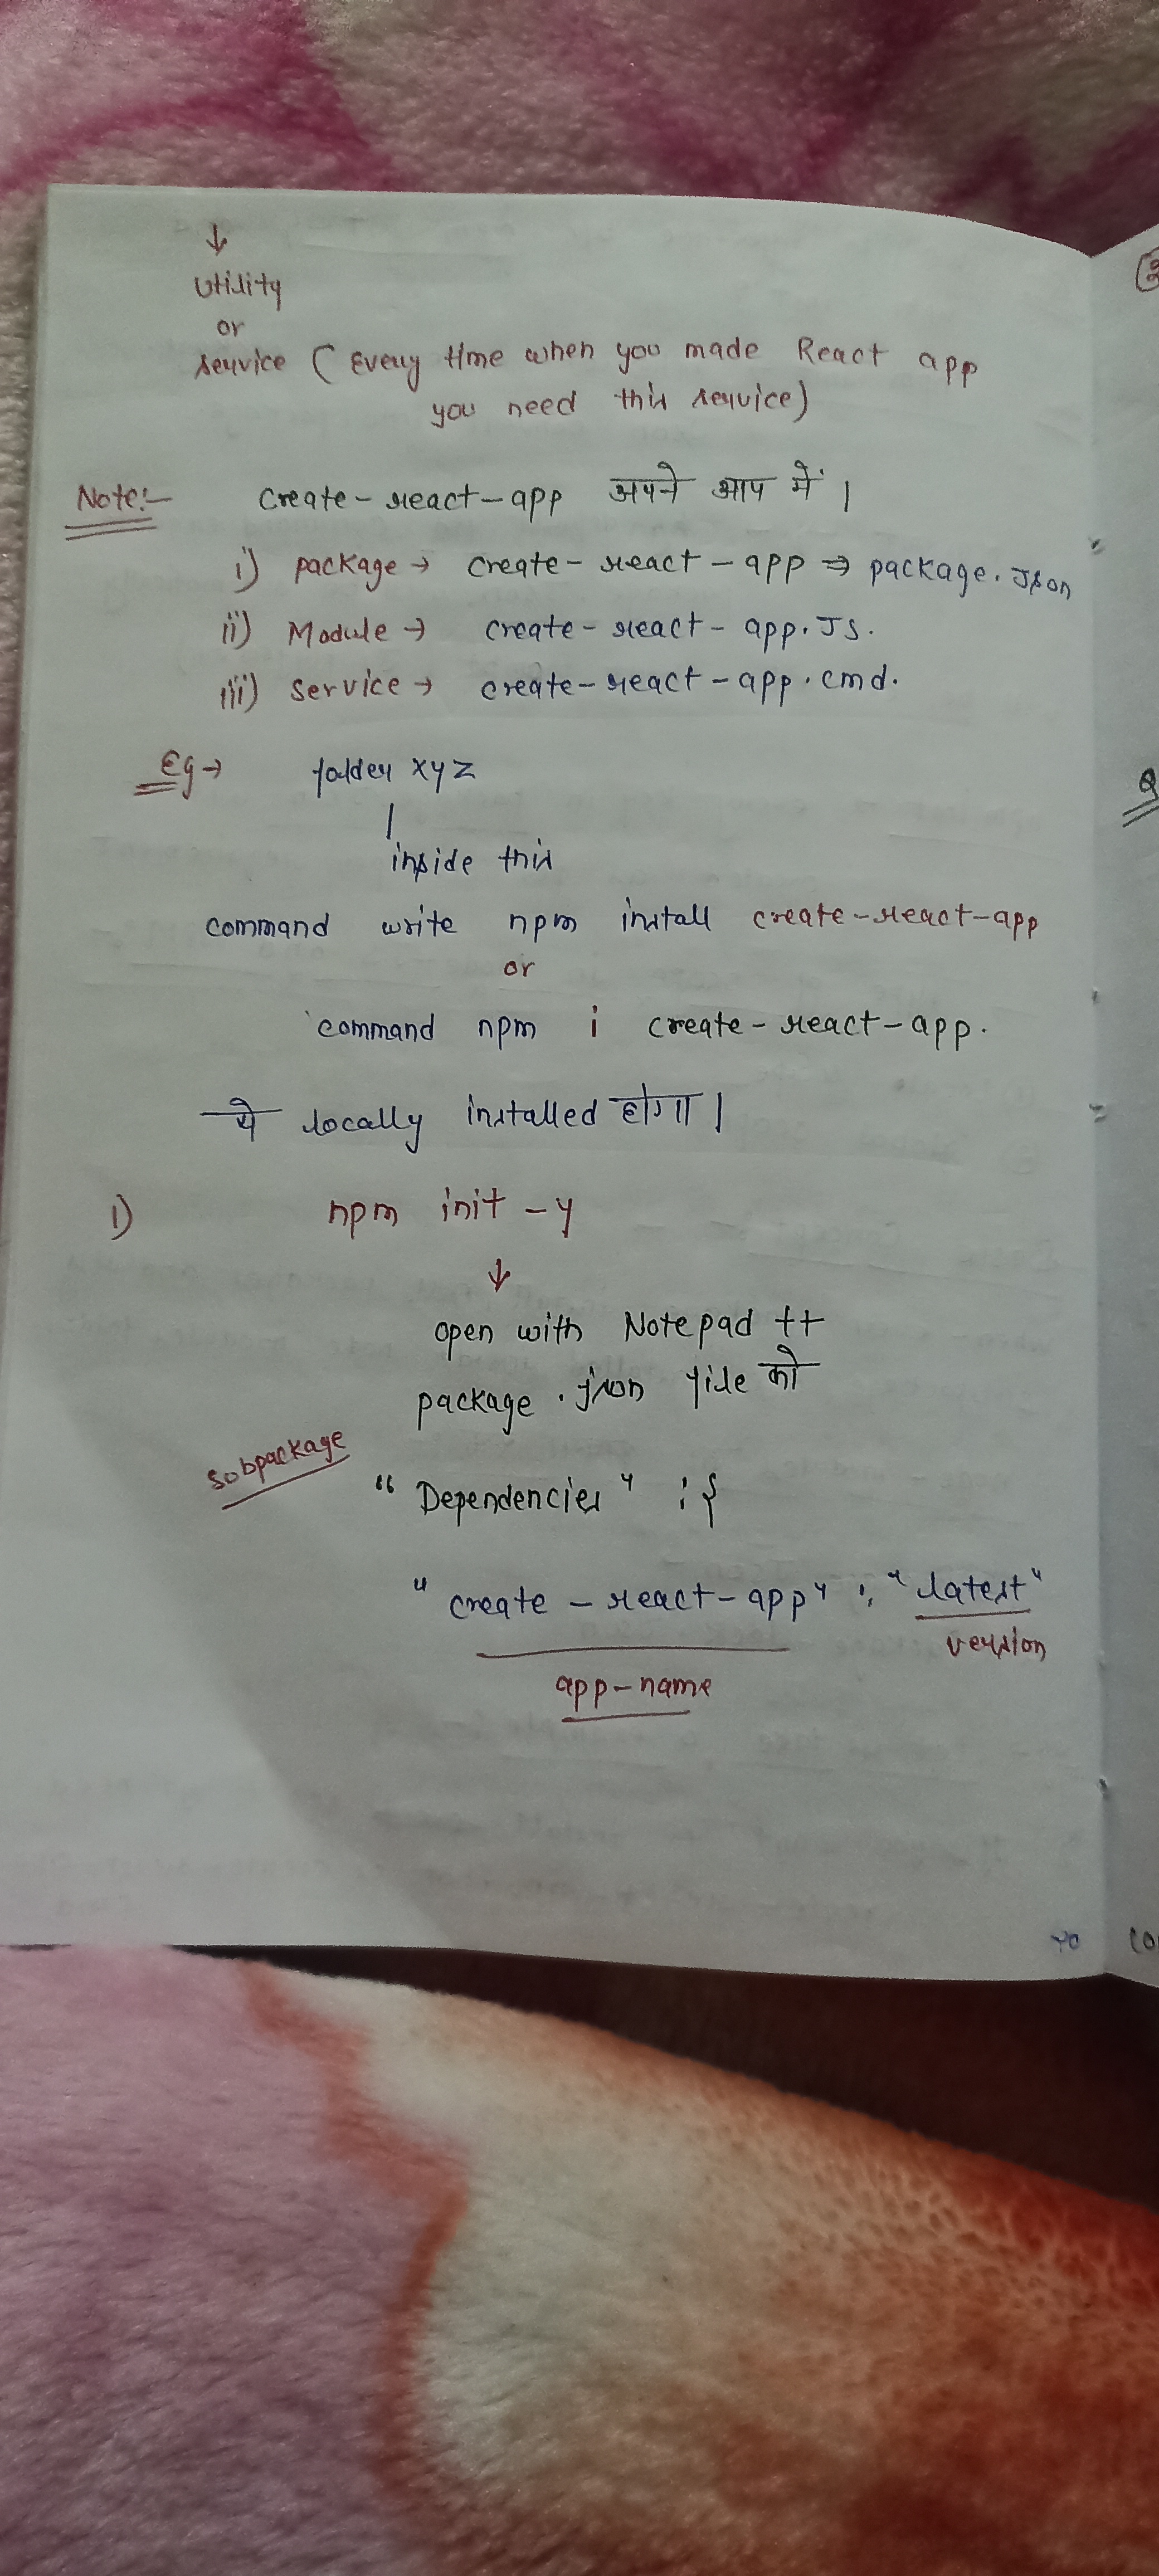 ↓
Utility
or
service ( Every time when you made React app
you need this service)
Note:- create-react-app अपने आप में |
i) package → create-react-app ⇒ package.Json
ii) Module → create-react-app.Js.
iii) Service → create-react-app.cmd.
Eg → folder xyz
|
inside this
command write npm install create-react-app
or
command npm i create-react-app.
ये locally installed होगा |
1) npm init -y
↓
open with Notepad ++
package.json file को
Subpackage
"Dependencies" : {
"create-react-app" : "latest"
version
app-name